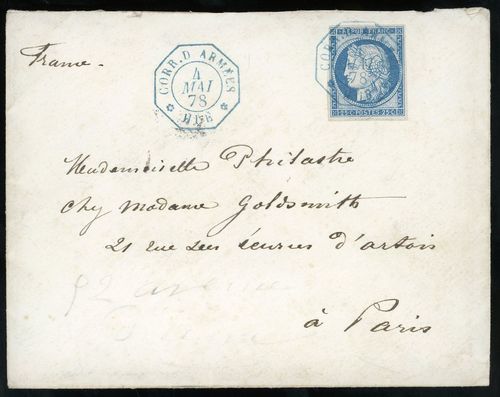 France.
CORR. D ARMEES
4
MAI
78
HUÉ
CORR
MAI
78
REPUB. FRANC.
25 C POSTES 25 C
Mademoiselle Philastre
chez madame Goldsmith
21 rue des écuries d'artois
à Paris